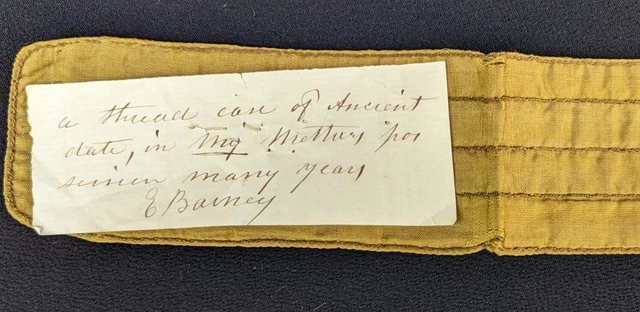 a thread case of Ancient
date, in My Mothers pos
session many years
E Barney